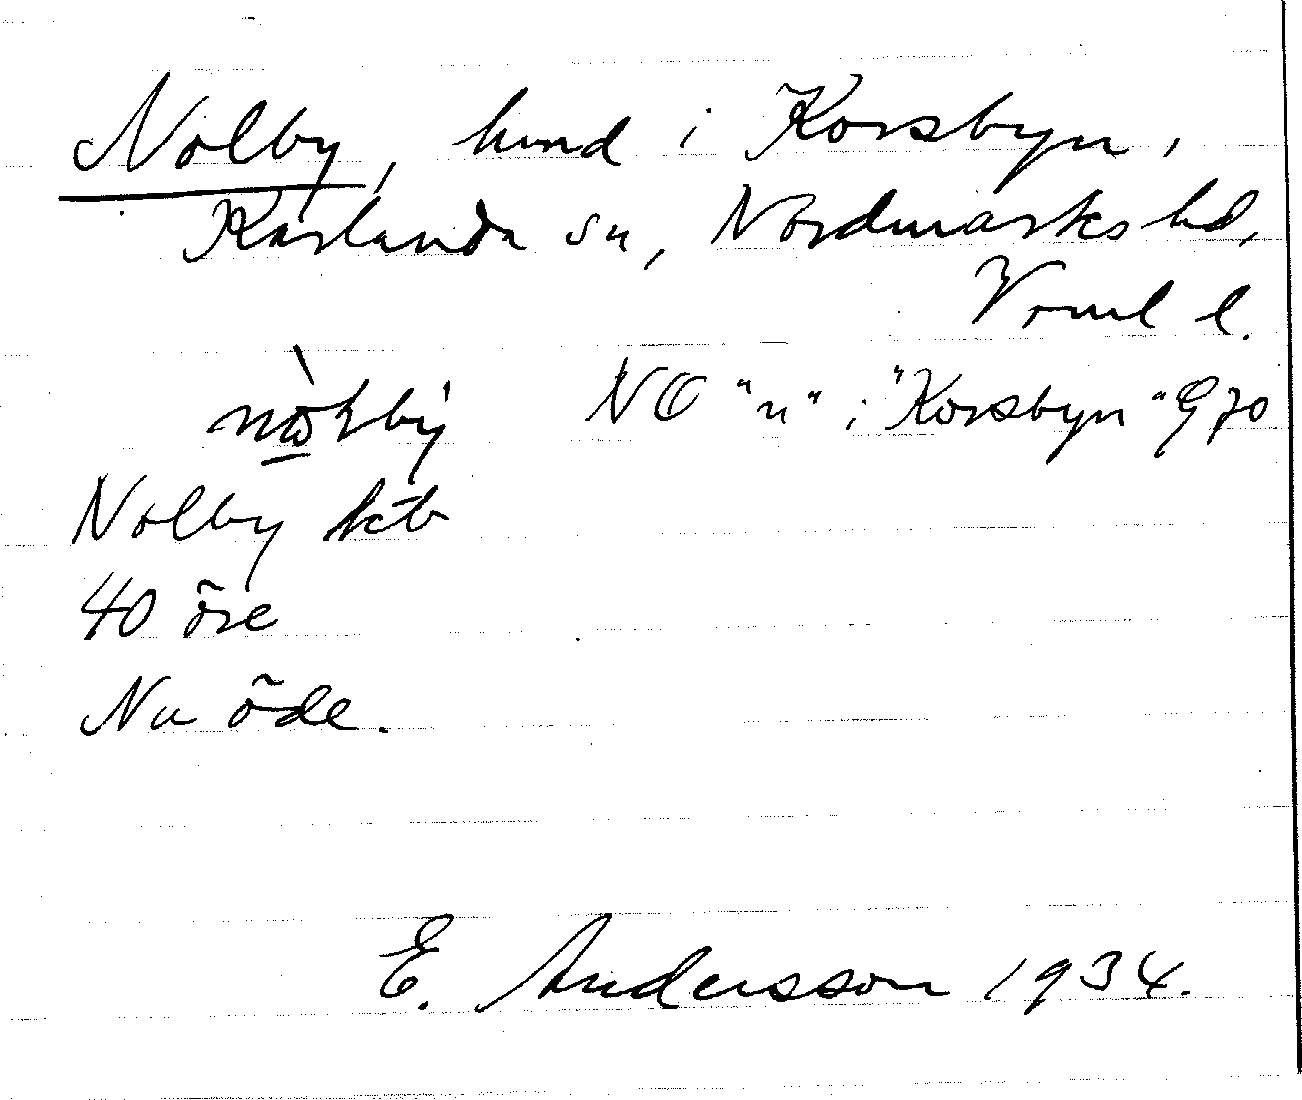 Nolby, hmd i Korsbyn,
Karlanda sn, Nordmarks hd,
Vrml l.
NO "n" i "Korsbyn" G 70
Nolby ktb
40 öre
Nu öde.
E. Andersson 1934.